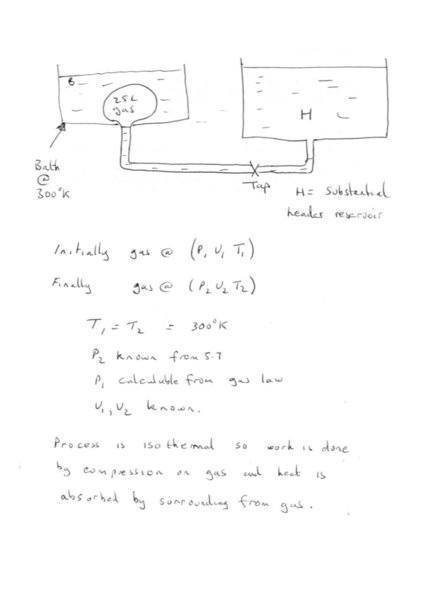 B
25L
gas
H
Bath
@
300°K
Tap
H = Substantial
header reservoir
Initially gas @ (P₁ V₁ T₁)
Finally gas @ (P₂ V₂ T₂)
T₁ = T₂ = 300°K
P₂ known from 5.7
P₁ calculable from gas law
V₁, V₂ known.
Process is isothermal so work is done
by compression on gas and heat is
absorbed by surrounding from gas.